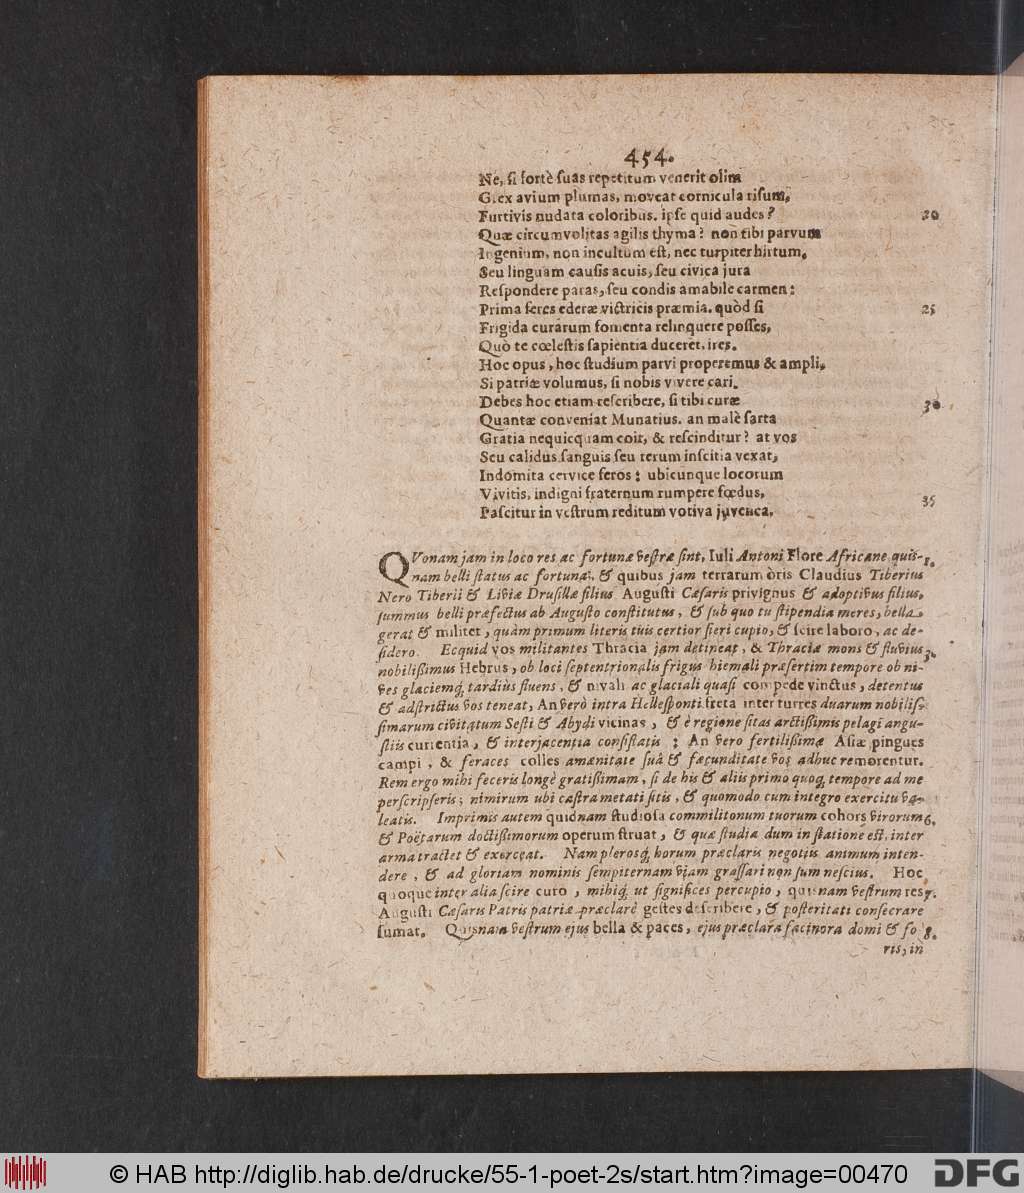 454.
Ne, si fortè suas repetitum venerit olim
Grex avium plumas, moveat cornicula risum,
Furtivis nudata coloribus. ipse quid audes? 20
Quæ circumvolitas agilis thyma? non tibi parvum
Ingenium, non incultum est, nec turpiter hirtum.
Seu linguam causis acuis, seu civica jura
Respondere paras, seu condis amabile carmen:
Prima feres ederæ victricis præmia. quòd si 25
Frigida curarum fomenta relinquere posses,
Quò te cœlestis sapientia duceret, ires.
Hoc opus, hoc studium parvi properemus & ampli,
Si patriæ volumus, si nobis vivere cari.
Debes hoc etiam rescribere, si tibi curæ 30
Quantæ conveniat Munatius. an malè sarta
Gratia nequicquam coit, & rescinditur? at vos
Seu calidus sanguis seu rerum inscitia vexat,
Indomita cervice feros: ubicunque locorum
Vivitis, indigni fraternum rumpere fœdus, 35
Pascitur in vestrum reditum votiva juvenca.
QVonam jam in loco res ac fortunæ vestræ sint, Iuli Antoni Flore Africane quis- 1.
nam belli status ac fortuna, & quibus jam terrarum òris Claudius Tiberius
Nero Tiberii & Liviæ Drusillæ filius Augusti Cæsaris privignus & adoptivus filius,
summus belli præfectus ab Augusto constitutus, & sub quo tu stipendia meres, bella
gerat & militet, quàm primum literis tuis certior fieri cupio, & scire laboro, ac de-
sidero. Ecquid vos militantes Thracia jam detineat, & Thraciæ mons & fluvius 3.
nobilißimus Hebrus, ob loci septentrionalis frigus hiemali præsertim tempore ob ni-
ves glaciemq́; tardiùs fluens, & nivali ac glaciali quasi compede vinctus, detentus
& adstrictus vos teneat, An verò intra Hellesponti freta inter turres duarum nobilis-
simarum civitatum Sesti & Abydi vicinas, & è regione sitas arctißimis pelagi angu-
stiis currentia, & interjacentia consistatis; An vero fertilißimæ Asiæ pingues
campi, & feraces colles amœnitate suâ & fœcunditate vos adhuc remorentur.
Rem ergo mihi feceris longè gratißimam, si de his & aliis primo quoq; tempore ad me
perscripseris; nimirum ubi castra metati sitis, & quomodo cum integro exercitu va-
leatis. Imprimis autem quidnam studiosa commilitonum tuorum cohors virorum 6.
& Poëtarum doctißimorum operum struat, & quæ studia dum in statione est, inter
arma tractet & exerceat. Nam plerosq́; horum præclaris negotiis animum inten-
dere, & ad gloriam nominis sempiternam viam grassari non sum nescius. Hoc
quoque inter alia scire curo, mihiq́; ut significes percupio, quisnam vestrum res 7.
Augusti Cæsaris Patris patriæ præclarè gestes describere, & posteritati consecrare
sumat. Quisnam vestrum ejus bella & paces, ejus præclara facinora domi & fo 8.
ris, in
© HAB http://diglib.hab.de/drucke/55-1-poet-2s/start.htm?image=00470
DFG